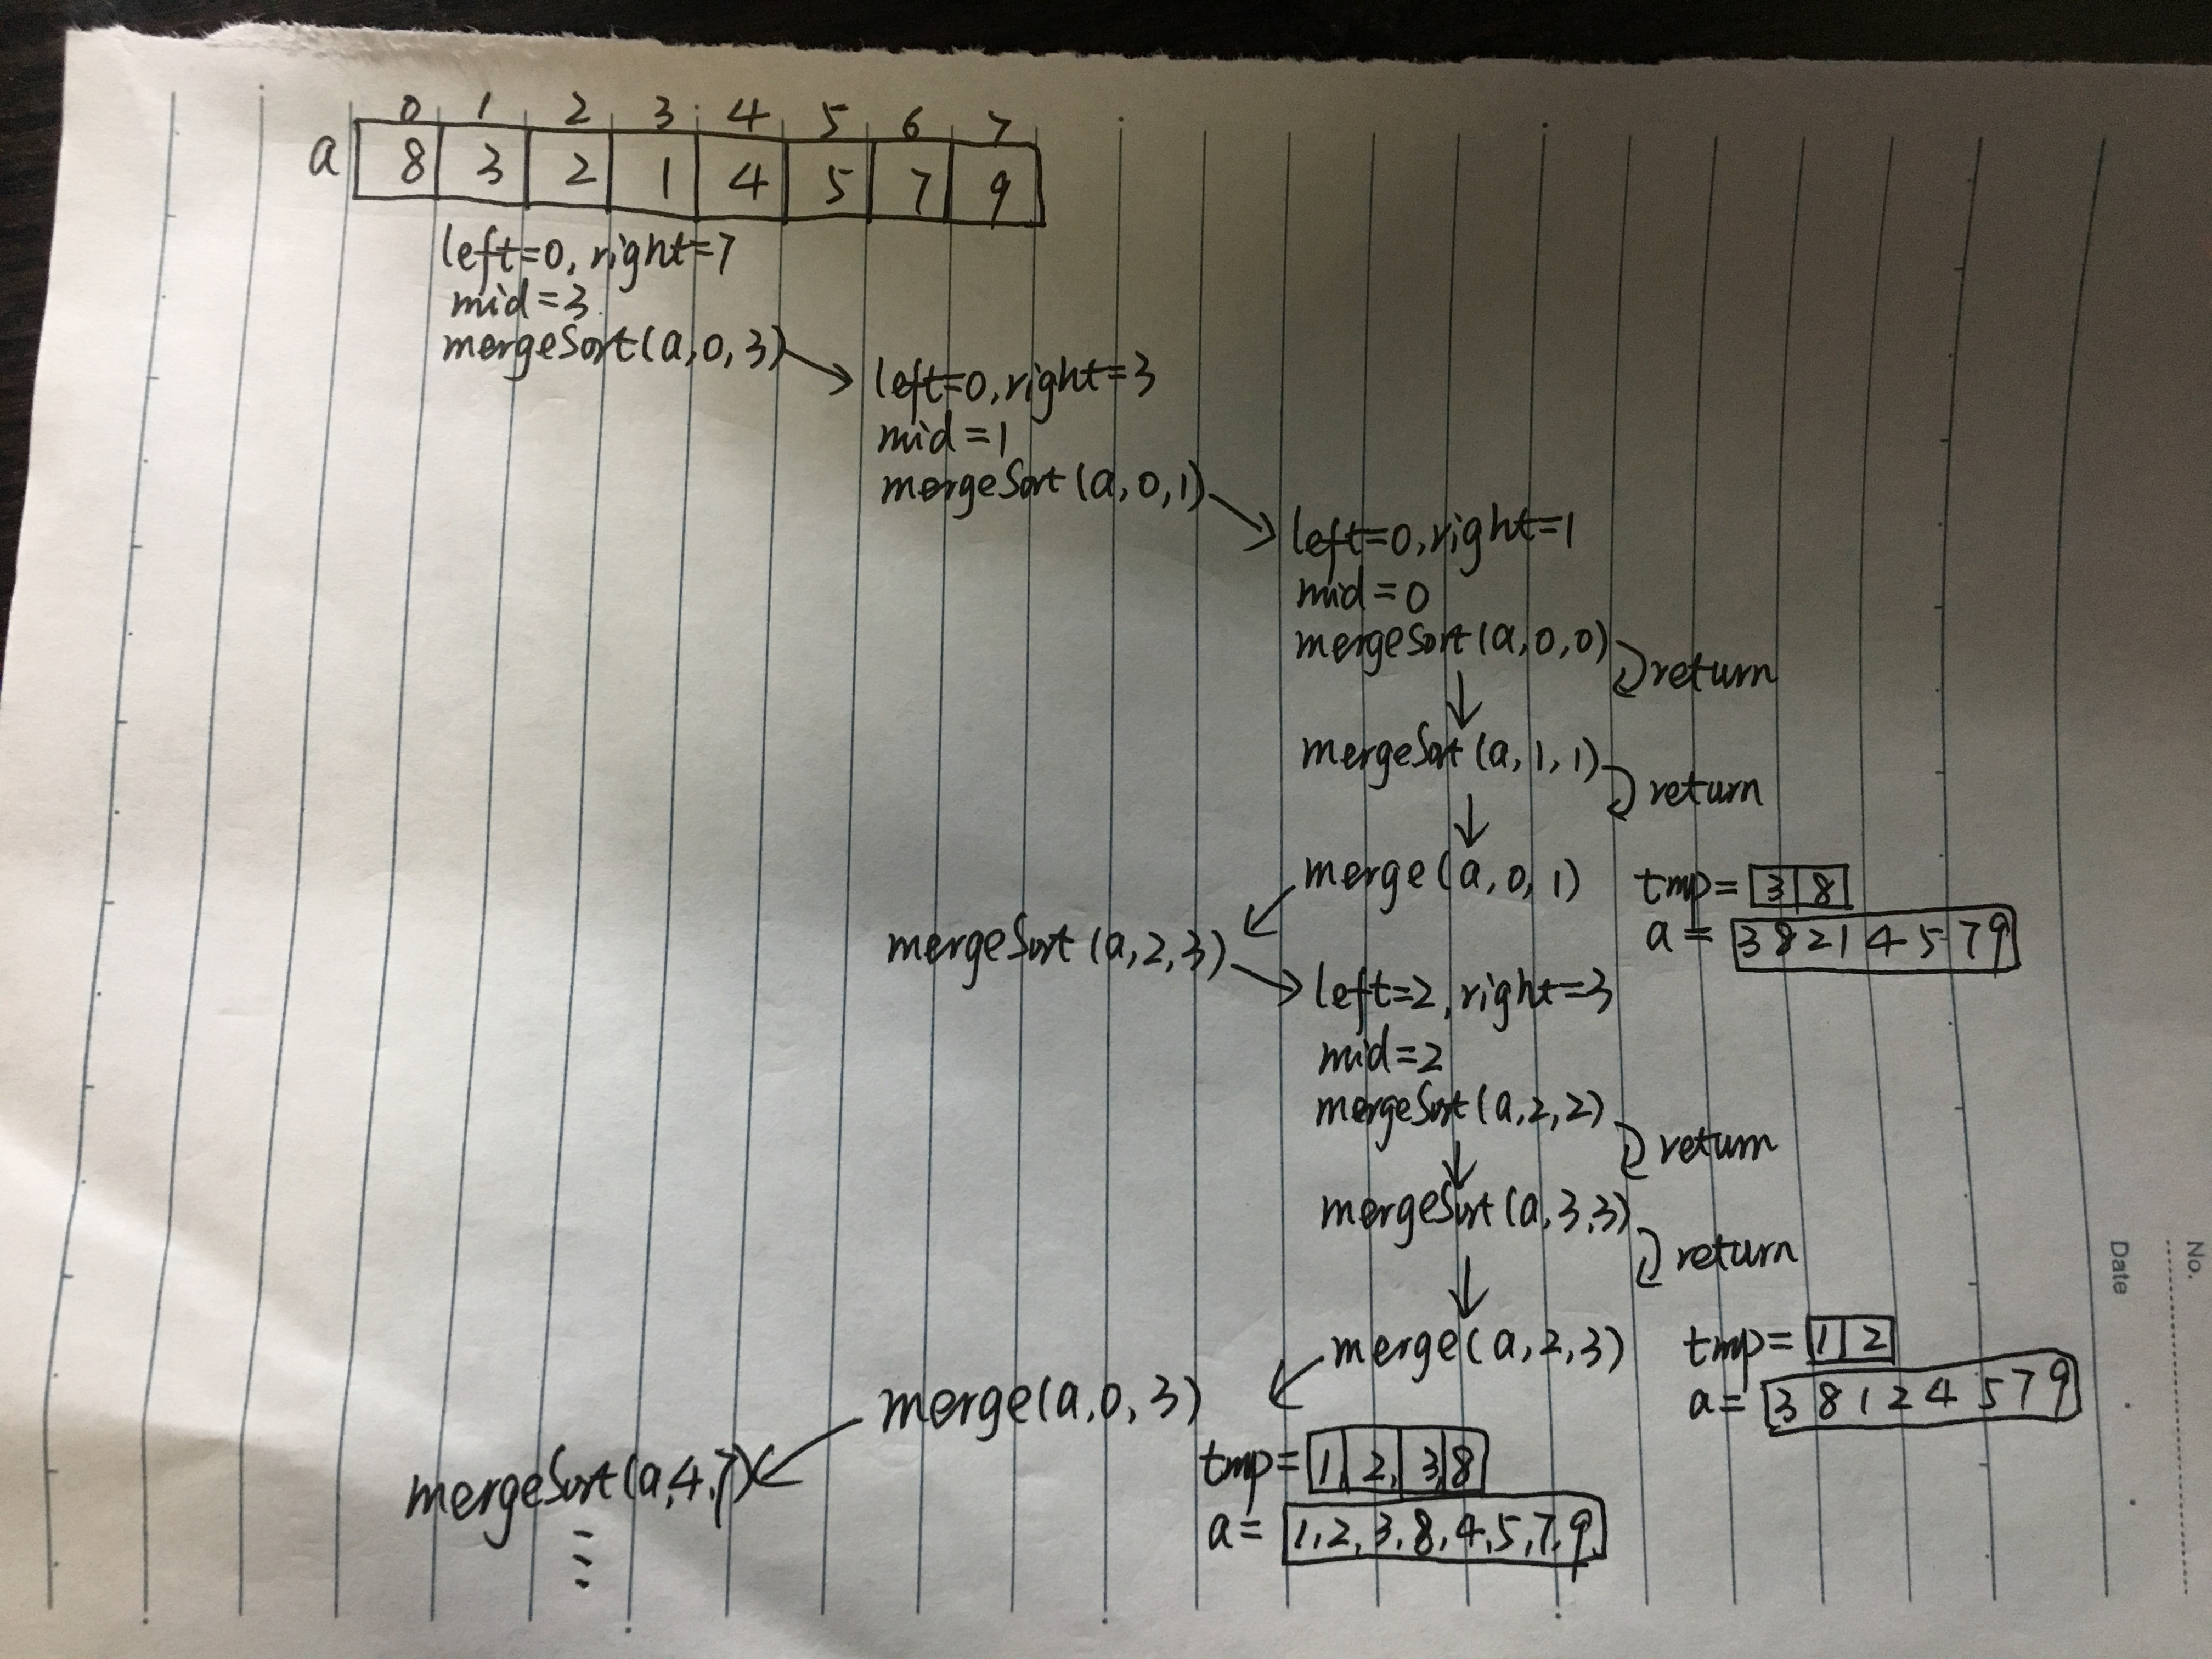 0 1 2 3 4 5 6 7
a 8 3 2 1 4 5 7 9
left=0, right=7
mid=3
mergeSort(a,0,3)
left=0,right=3
mid=1
mergeSort(a,0,1)
left=0,right=1
mid=0
mergeSort(a,0,0)
return
mergeSort(a,1,1)
return
merge(a,0,1)
tmp= 3 8
a= 3 8 2 1 4 5 7 9
mergeSort(a,2,3)
left=2,right=3
mid=2
mergeSort(a,2,2)
return
mergeSort(a,3,3)
return
merge(a,2,3)
tmp= 1 2
a= 3 8 1 2 4 5 7 9
merge(a,0,3)
tmp= 1, 2, 3, 8
a= 1,2,3,8,4,5,7,9
mergeSort(a,4,7)
No.
Date